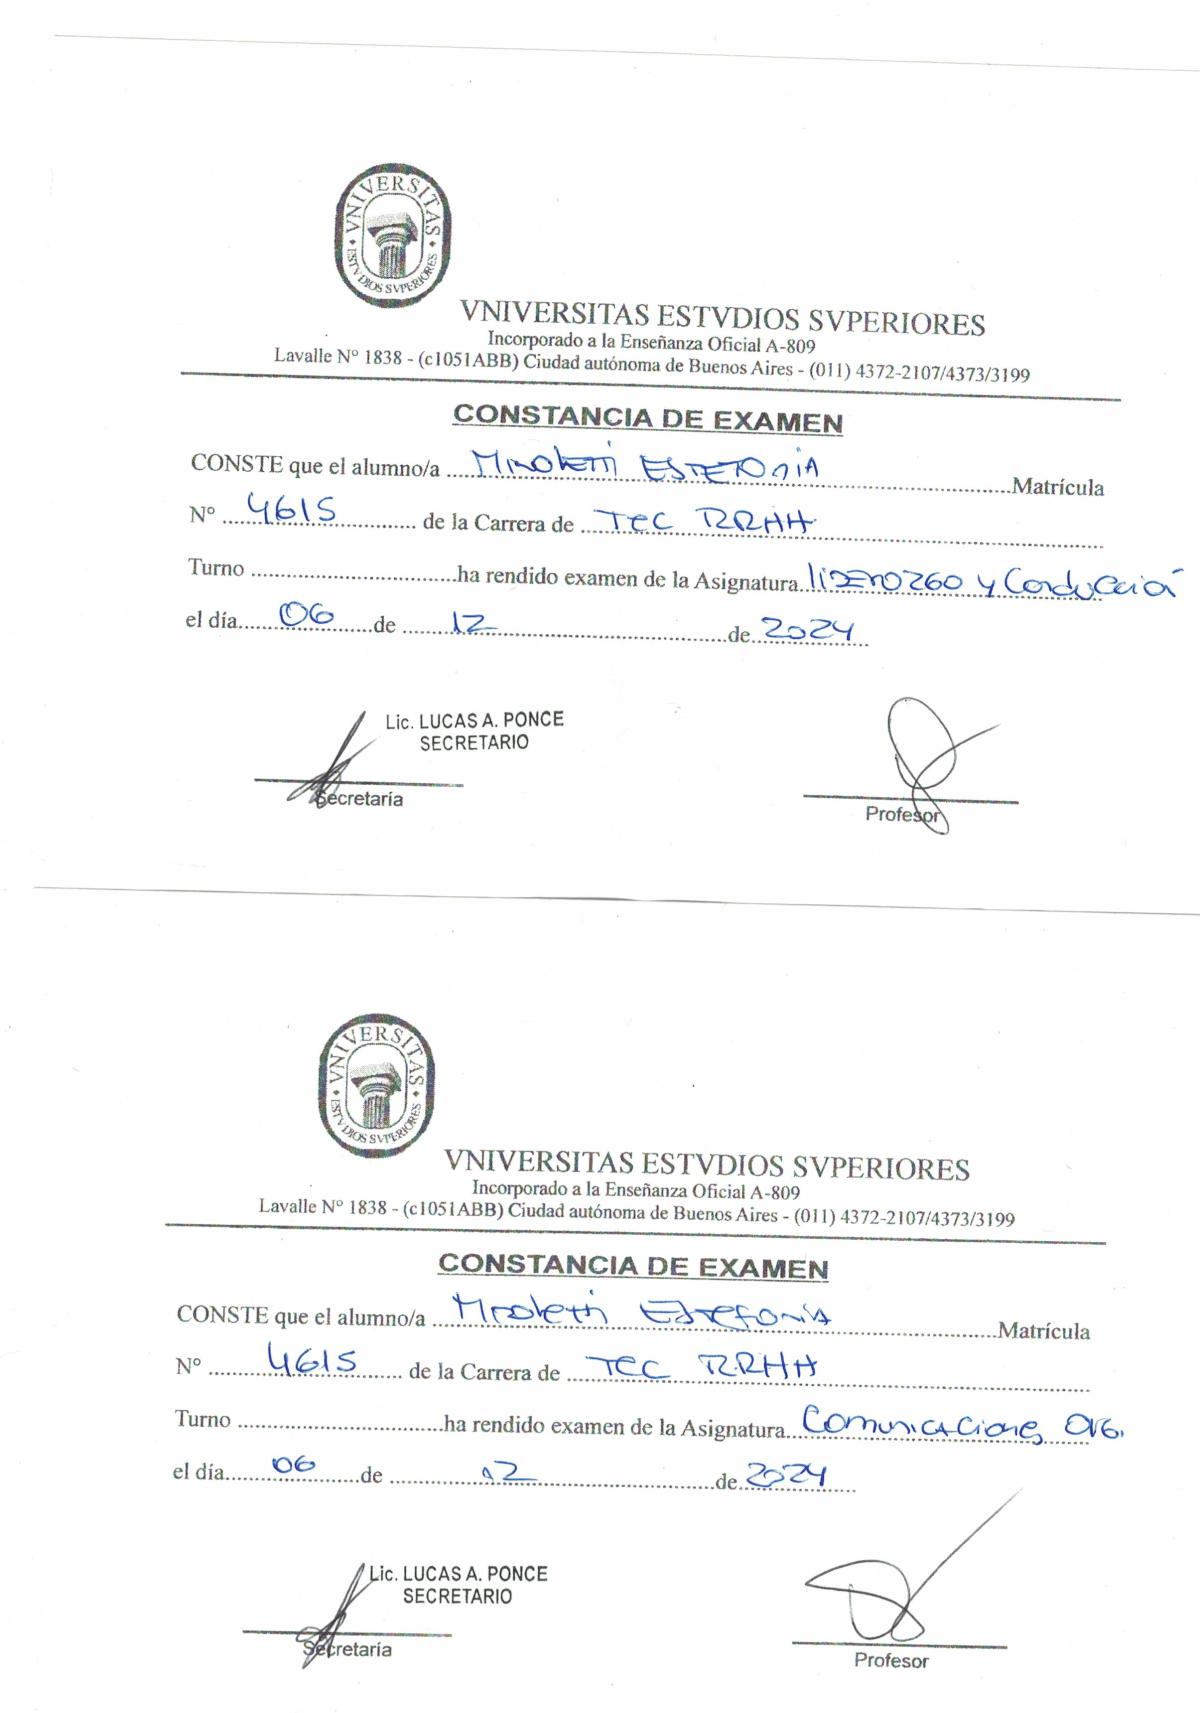 VNIVERSITAS
ESTVDIOS SVPERIORES
VNIVERSITAS ESTVDIOS SVPERIORES
Incorporado a la Enseñanza Oficial A-809
Lavalle Nº 1838 - (c1051ABB) Ciudad autónoma de Buenos Aires - (011) 4372-2107/4373/3199
CONSTANCIA DE EXAMEN
CONSTE que el alumno/a Estefania Matrícula
Nº 4615 de la Carrera de Tec RRHH
Turno ha rendido examen de la Asignatura liderazgo y Conducción
el día 06 de 12 de 2024
Lic. LUCAS A. PONCE
SECRETARIO
Secretaría
Profesor
VNIVERSITAS
ESTVDIOS SVPERIORES
VNIVERSITAS ESTVDIOS SVPERIORES
Incorporado a la Enseñanza Oficial A-809
Lavalle Nº 1838 - (c1051ABB) Ciudad autónoma de Buenos Aires - (011) 4372-2107/4373/3199
CONSTANCIA DE EXAMEN
CONSTE que el alumno/a Estefania Matrícula
Nº 4615 de la Carrera de Tec RRHH
Turno ha rendido examen de la Asignatura Comunicaciones Org.
el día 06 de 12 de 2024
Lic. LUCAS A. PONCE
SECRETARIO
Secretaría
Profesor